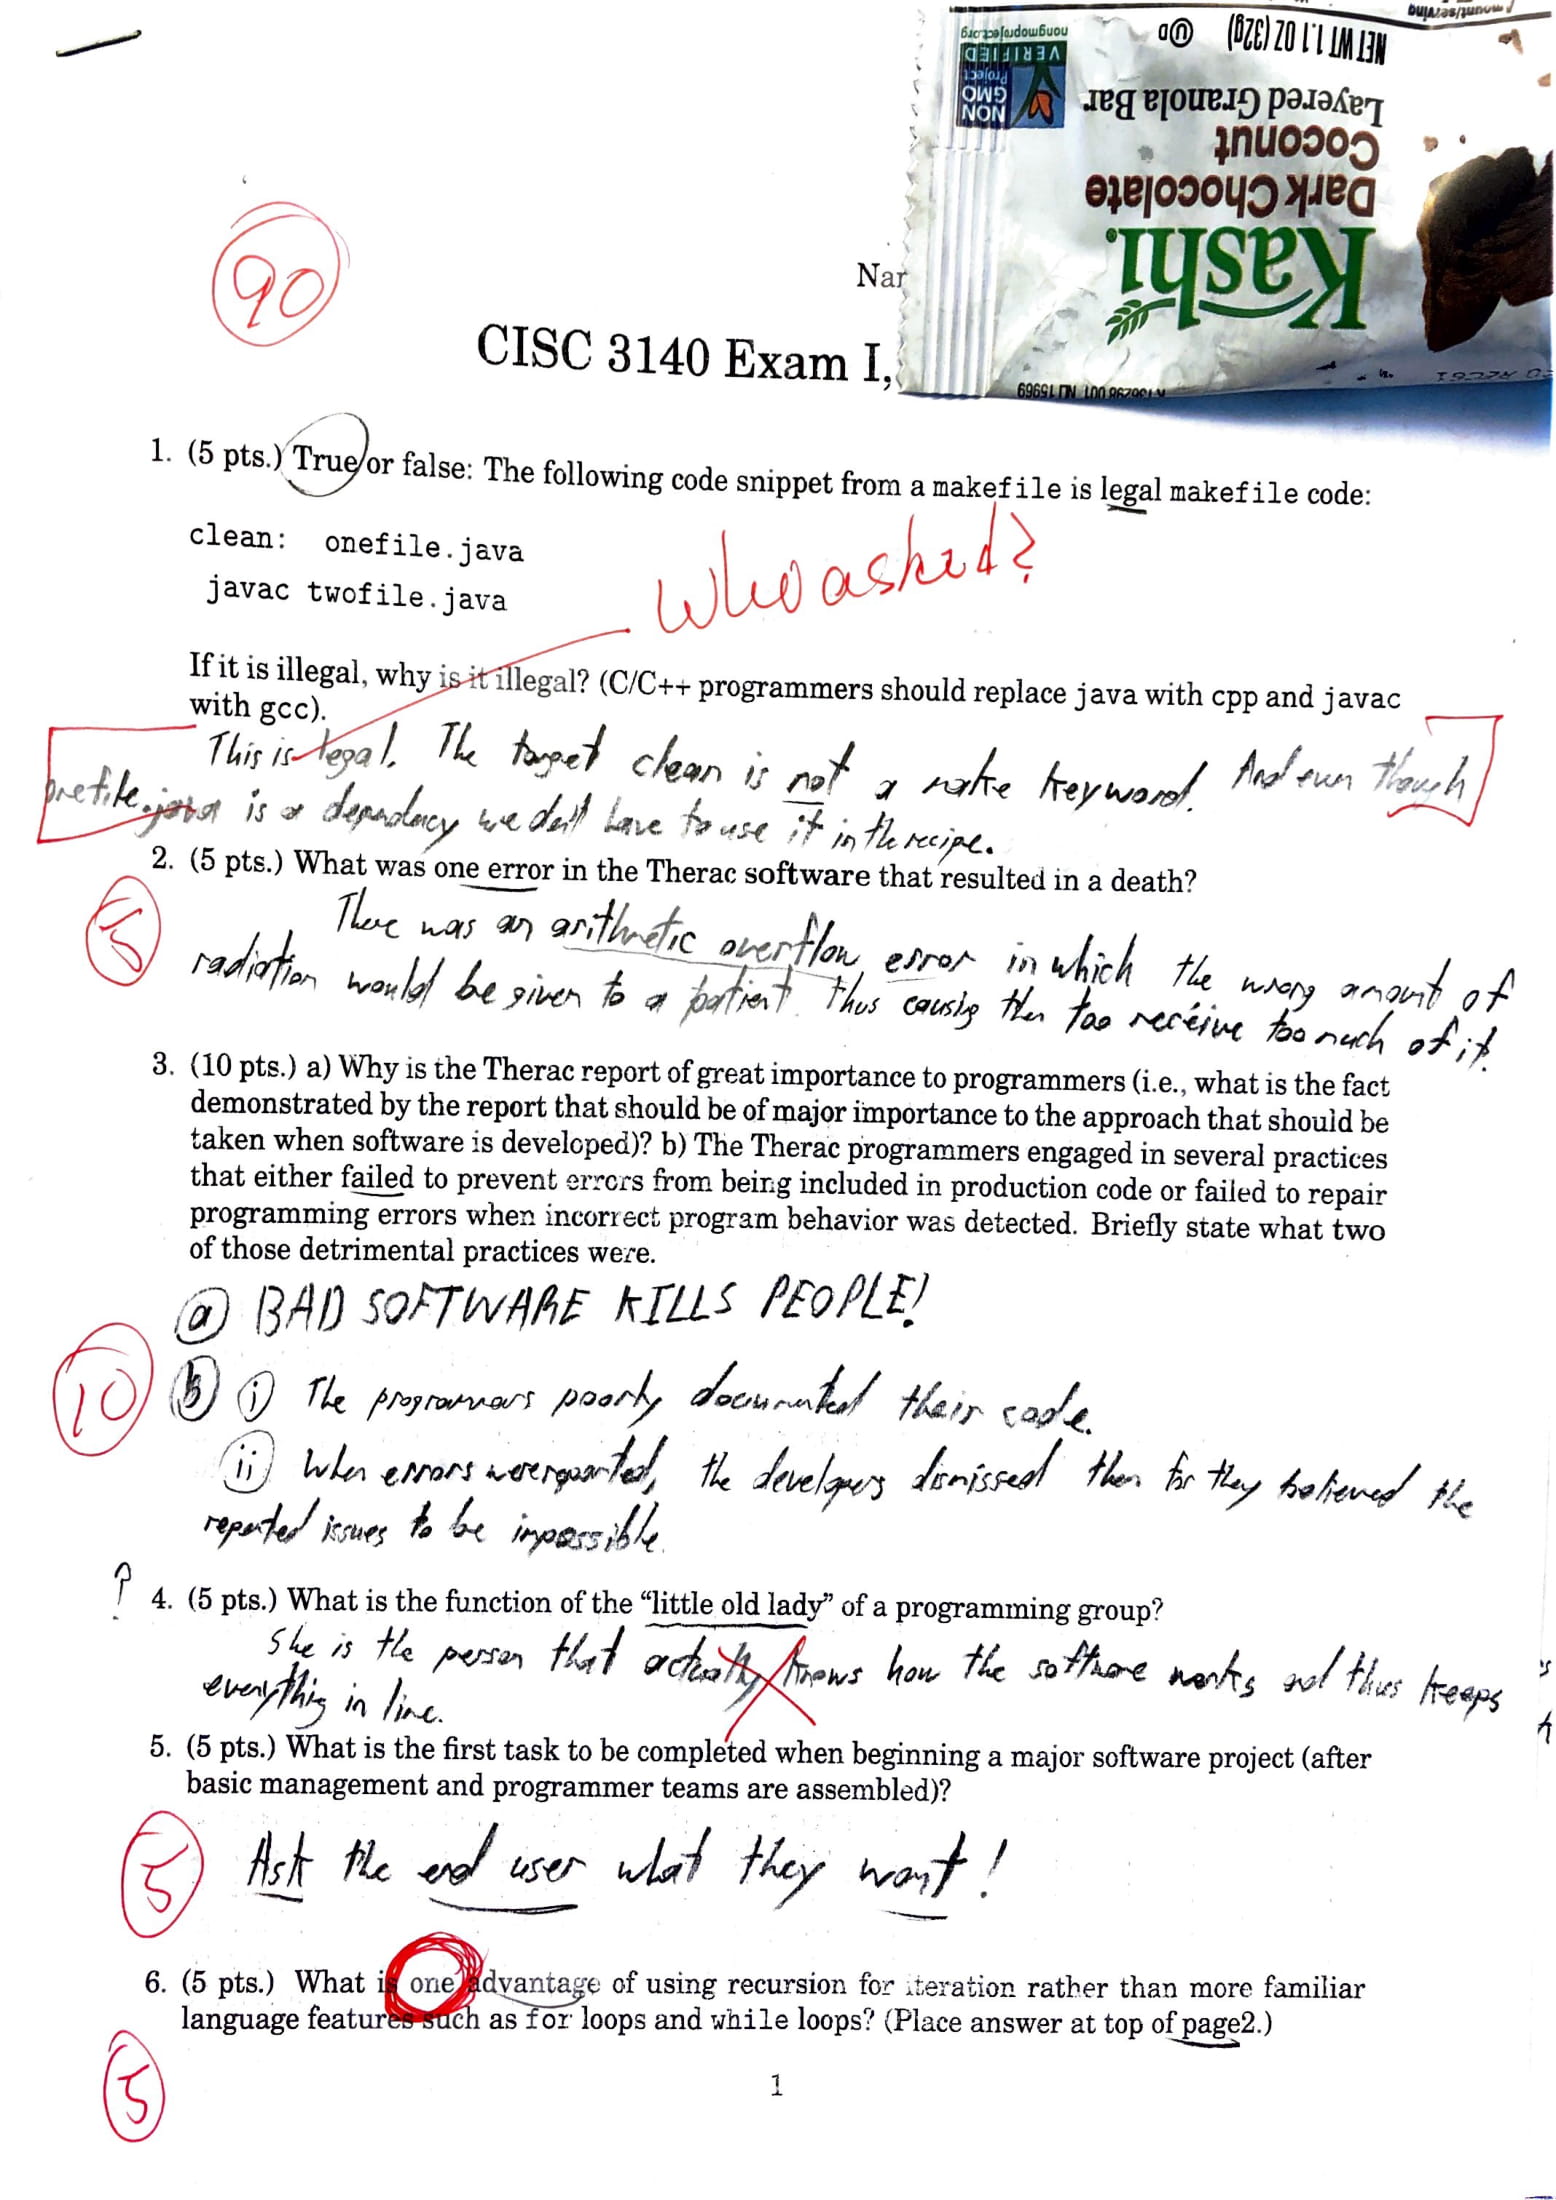 mount/serving
NET WT 1.1 OZ (32g) UD
nongmoproject.org
VERIFIED
NON
GMO
Project
Layered Granola Bar
Coconut
Dark Chocolate
Kashi.
90
Nar
CISC 3140 Exam I,
1. (5 pts.) True or false: The following code snippet from a makefile is legal makefile code:
clean: onefile.java
javac twofile.java
Who asked?
If it is illegal, why is it illegal? (C/C++ programmers should replace java with cpp and javac
with gcc).
This is legal. The target clean is not a make keyword. And even though
onefile.java is a dependency we don't have to use it in the recipe.
2. (5 pts.) What was one error in the Therac software that resulted in a death?
5
There was an arithmetic overflow error in which the wrong amount of
radiation would be given to a patient. Thus causing them too receive too much of it.
3. (10 pts.) a) Why is the Therac report of great importance to programmers (i.e., what is the fact
demonstrated by the report that should be of major importance to the approach that should be
taken when software is developed)? b) The Therac programmers engaged in several practices
that either failed to prevent errors from being included in production code or failed to repair
programming errors when incorrect program behavior was detected. Briefly state what two
of those detrimental practices were.
a BAD SOFTWARE KILLS PEOPLE!
10
b i The programmers poorly documented their code.
ii When errors were reported, the developers dismissed them for they believed the
reported issues to be impossible.
? 4. (5 pts.) What is the function of the “little old lady” of a programming group?
She is the person that actually knows how the software works and thus keeps
everything in line.
5. (5 pts.) What is the first task to be completed when beginning a major software project (after
basic management and programmer teams are assembled)?
5
Ask the end user what they want!
6. (5 pts.) What is one advantage of using recursion for iteration rather than more familiar
language features such as for loops and while loops? (Place answer at top of page2.)
5
1